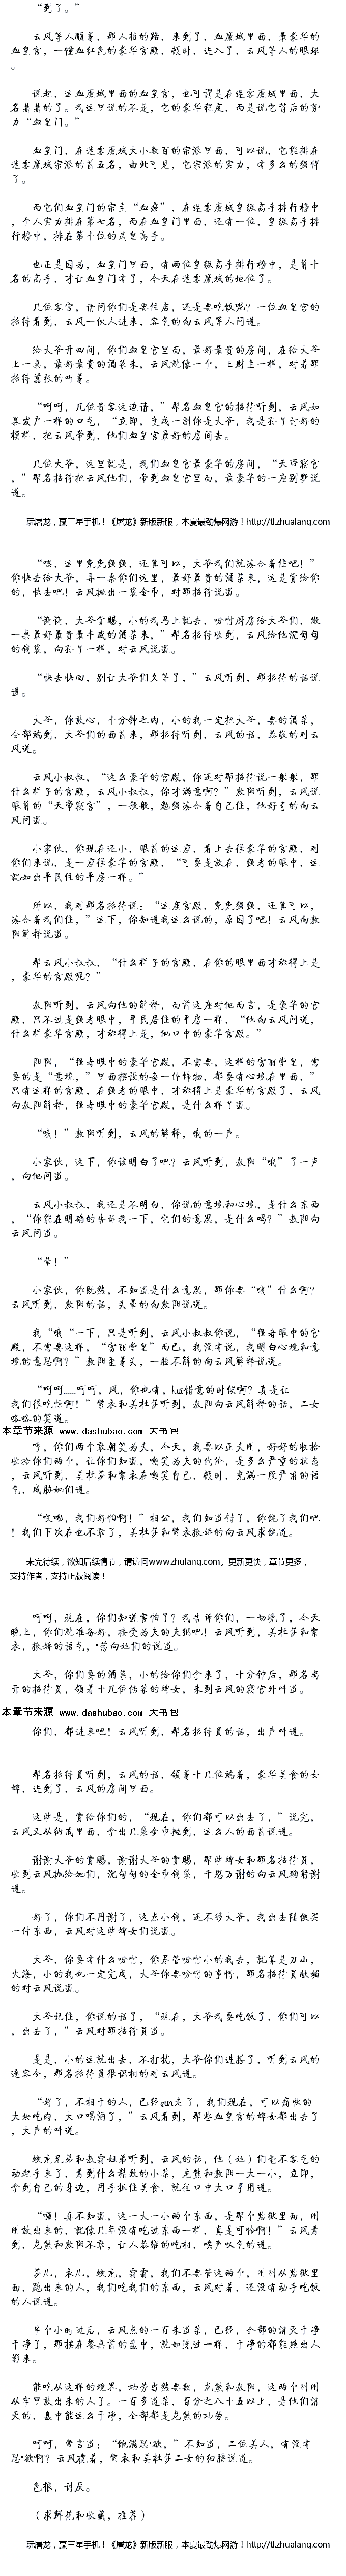 “到了。”
云风等人顺着，那人指的路，来到了，血魔城里面，最豪华的
血皇宫，一幢血红色的豪华宫殿，顿时，进入了，云风等人的眼球
。
说起，这血魔城里面的血皇宫，也可谓是在迷雾魔域里面，大
名鼎鼎的了。我这里说的不是，它的豪华程度，而是说它背后的势
力“血皇门。”
血皇门，在迷雾魔域大小数百的宗派里面，可以说，它能排在
迷雾魔域宗派的前五名，由此可见，它宗派的实力，有多么的强悍
了。
而它们血皇门的宗主“血杀”，在迷雾魔域皇级高手排行榜中
，个人实力排在第七名，而在血皇门里面，还有一位，皇级高手排
行榜中，排在第十位的武皇高手。
也正是因为，血皇门里面，有两位皇级高手排行榜中，是前十
名的高手，才让血皇门有了，今天在迷雾魔域的地位了。
几位客官，请问你们是要住店，还是要吃饭呢？一位血皇宫的
招待看到，云风一伙人进来，客气的向云风等人问道。
给大爷开四间，你们血皇宫里面，最好最贵的房间，在给大爷
上一桌，最好最贵的酒菜来，云风就像一个，土财主一样，对着那
招待嚣张的叫着。
“呵呵，几位贵客这边请，”那名血皇宫的招待听到，云风如
暴发户一样的口气，“立即，变成一副你是大爷，我是孙子讨好的
模样，把云风带到，他们血皇宫最好的房间去。
几位大爷，这里就是，我们血皇宫最豪华的房间，“天帝寝宫
，”那名招待把云风他们，带到血皇宫里面，最豪华的一座别墅说
道。
玩屠龙，赢三星手机！《屠龙》新版新服，本夏最劲爆网游！http://tl.zhualang.com
“嗯，这里免免强强，还算可以，大爷我们就凑合着住吧！”
你快去给大爷，弄一桌你们这里，最好最贵的酒菜来，这是赏给你
的，快去吧！云风抛出一袋金币，对那招待说道。
“谢谢，大爷赏赐，小的我马上就去，吩咐厨房给大爷们，做
一桌最好最贵最丰盛的酒菜来，”那名招待收到，云风给他沉甸甸
的钱袋，向孙子一样，对云风说道。
“快去快回，别让大爷们久等了，”云风听到，那招待的话说
道。
大爷，你放心，十分钟之内，小的我一定把大爷，要的酒菜，
全部端到，大爷们的面前来，那招待听到，云风的话，恭敬的对云
风道。
云风小叔叔，“这么豪华的宫殿，你还对那招待说一般般，那
什么样子的宫殿，云风小叔叔，你才满意啊？”敖阳听到，云风说
眼前的“天帝寝宫”，一般般，勉强凑合着自己住，他好奇的向云
风问道。
小家伙，你现在还小，眼前的这座，看上去很豪华的宫殿，对
你们来说，是一座很豪华的宫殿，“可要是放在，强者的眼中，这
就如出平民住的平房一样。”
所以，我对那名招待说：“这座宫殿，免免强强，还算可以，
凑合着我们住，”这下，你知道我这么说的，原因了吧！云风向敖
阳解释说道。
那云风小叔叔，“什么样子的宫殿，在你的眼里面才称得上是
，豪华的宫殿呢？”
敖阳听到，云风向他的解释，面前这座对他而言，是豪华的宫
殿，只不过是强者眼中，平民居住的平房一样，“他向云风问道，
什么样豪华宫殿，才称得上是，他口中的豪华宫殿。”
阳阳，“强者眼中的豪华宫殿，不需要，这样的富丽堂皇，需
要的是“意境，”里面摆设的每一件饰物，都要有心境在里面，”
只有这样的宫殿，在强者的眼中，才称得上是豪华的宫殿了，云风
向敖阳解释，强者眼中的豪华宫殿，是什么样子道。
“哦！”敖阳听到，云风的解释，哦的一声。
小家伙，这下，你该明白了吧？云风听到，敖阳“哦”了一声
，向他问道。
云风小叔叔，我还是不明白，你说的意境和心境，是什么东西
，“你能在明确的告诉我一下，它们的意思，是什么吗？”敖阳向
云风问道。
“晕！”
小家伙，你既然，不知道是什么意思，那你要“哦”什么啊？
云风听到，敖阳的话，头晕的向敖阳说道。
我“哦“一下，只是听到，云风小叔叔你说，“强者眼中的宫
殿，不需要这样，“富丽堂皇”而已，我没有说，我明白心境和意
境的意思啊？”敖阳歪着头，一脸不解的向云风解释说道。
“呵呵……呵呵，风，你也有，hui错意的时候啊？真是让
我们很吃惊啊！”紫衣和美杜莎听到，敖阳向云风解释的话，二女
咯咯的笑道。
本章节来源 www.dashubao.com 大书包
哼，你们两个敢嘲笑为夫，今天，我要以正夫刚，好好的收拾
收拾你们两个，让你们知道，嘲笑为夫的代价，是多么严重的状态
，云风听到，美杜莎和紫衣在嘲笑自己，顿时，充满一股严肃的语
气，威胁她们道。
“哎呦，我们好怕啊！”相公，我们知道错了，你饶了我们吧
！我们下次在也不敢了，美杜莎和紫衣撒娇的向云风求饶道。
未完待续，欲知后续情节，请访问www.zhulang.com。更新更快，章节更多，
支持作者，支持正版阅读！
呵呵，现在，你们知道害怕了？我告诉你们，一切晚了，今天
晚上，你们就准备好，接受为夫的夫纲吧！云风听到，美杜莎和紫
衣，撒娇的语气，·荡向她们的说道。
大爷，你们要的酒菜，小的给你们拿来了，十分钟后，那名离
开的招待員，领着十几位传菜的婢女，来到云风的寝宫外叫道。
本章节来源 www.dashubao.com 大书包
你们，都进来吧！云风听到，那名招待員的话，出声叫道。
那名招待員听到，云风的话，领着十几位端着，豪华美食的女
婢，进到了，云风的房间里面。
这些是，赏给你们的，“现在，你们都可以出去了，”说完，
云风又从纳戒里面，拿出几袋金币抛到，这么人的面前说道。
谢谢大爷的赏赐，谢谢大爷的赏赐，那些婢女和那名招待員，
收到云风抛给她们，沉甸甸的金币钱袋，千恩万谢的向云风鞠躬谢
道。
好了，你们不用谢了，这点小钱，还不够大爷，我出去随便买
一件东西，云风对这些婢女们说道。
大爷，你要有什么吩咐，你尽管吩咐小的我去，就算是刀山，
火海，小的我也一定完成，大爷你要吩咐的事情，那名招待員献媚
的对云风说道。
大爷记住，你说的话了，“现在，大爷我要吃饭了，你们可以
，出去了，”云风对那招待員道。
是是，小的这就出去，不打扰，大爷你们进膳了，听到云风的
逐客令，那名招待員很识相的对云风道。
“好了，不相干的人，已经gun走了，我们现在，可以痛快的
大块吃肉，大口喝酒了，”云风看到，那些血皇宫的婢女都出去了
，大声的叫道。
蛟龙兄弟和敖雷姐弟听到，云风的话，他（她）们毫不客气的
动起手来了，看到什么精致的小菜，龙熊和敖阳一大一小，立即，
拿到自己的身边，用手抓住美食，就往口中大口享用道。
“嗨！真不知道，这一大一小两个东西，是那个监狱里面，刚
刚放出来的，就像几年没有吃过东西一样，真是可怜啊！”云风看
到，龙熊和敖阳不敢，让人恭维的吃相，唉声叹气的道。
莎儿，衣儿，蛟龙，雷雷，我们不要管这两个，刚刚从监狱里
面，跑出来的人，我们吃我们的东西，云风对着，还没有动手吃饭
的人说道。
半个小时过后，云风点的一百来道菜，已经，全部的消灭干净
干净了，那摆在餐桌前的盘中，就如洗过一样，干净的都能照出人
影来。
能吃从这样的境界，功劳当然要数，龙熊和敖阳，这两个刚刚
从牢里放出来的人了。一百多道菜，百分之八十五以上，是他们消
灭的，盘中能这么干净，全部都是龙熊的功劳。
呵呵，常言道：“饱满思·欲，”不知道，二位美人，有没有
思·欲啊？云风搅着，紫衣和美杜莎二女的细腰说道。
色狼，讨厌。
（求鲜花和收藏，推荐）
玩屠龙，赢三星手机！《屠龙》新版新服，本夏最劲爆网游！http://tl.zhualang.com